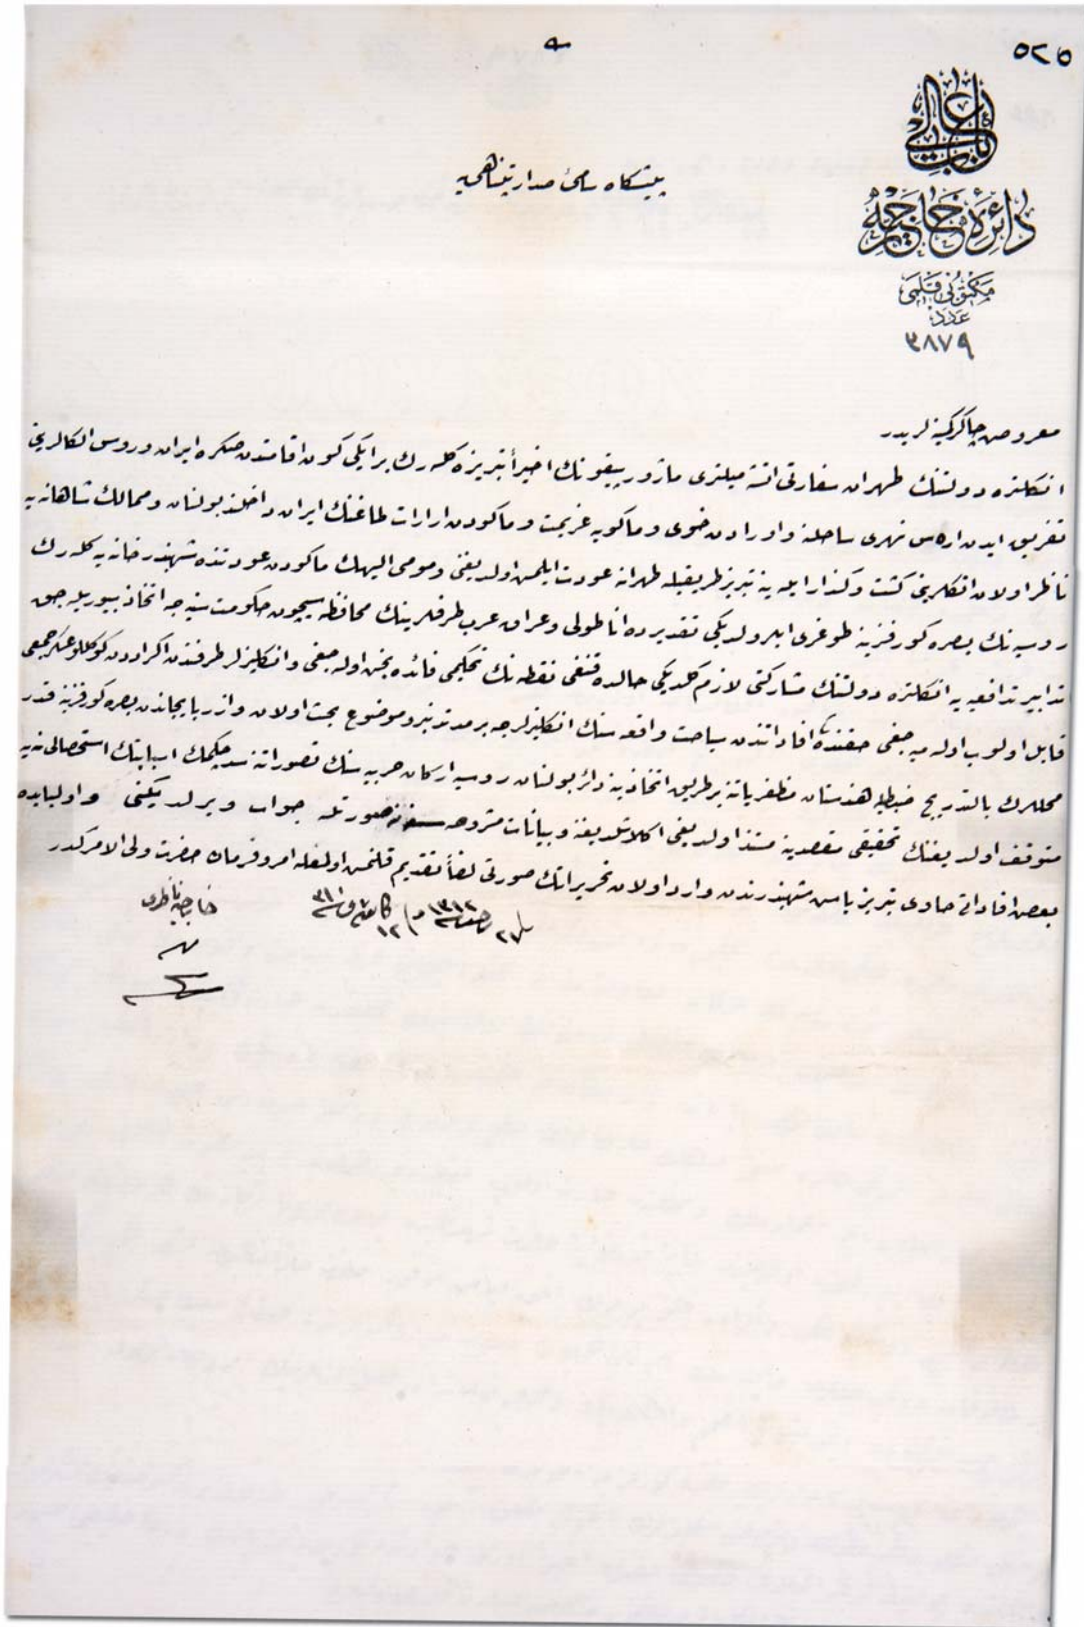 ٥٢٥
باب عالی
دائرهٔ خارجیه
مكتوبی قلمی
عدد
٣٨٧٩
پیشكاه سامئ صدارتپناهی یه
معروض چاكركمینه لریدر
انكلتره دولتنك طهران سفارتی اتشه میلتری ماژور پیقوتك اخیراً تبریزه كله رك بر ایكی كون اقامتدن صكره ایران و روس انكالرینی
تفریق ایدن اراس نهری ساحلنه و اورادن خوی و ماكویه عزیمت و ماكودن ارارات طاغنك ایران داخلنده بولنان و ممالك شاهانه یه
ناظر اولان اتكلرینی كشت و كذار ایله ینه تبریز طریقیله طهرانه عودت ایلمش اولدیغی و مومی الیهك ماكودن عودتنده شهبندرخانه یه كله رك
روسیه نك بصره كورفزینه طوغری ایلرولدیكی تقدیرده اناطولی و عراق عرب طرفلرینك محافظه سیچون حكومت سنیه جه اتخاذ بیوریله جق
تدابیر تدافعیه یه انكلتره دولتنك مشاركتی لازم كلدیكی حالده قنغی نقطه نك تحكیمی فائده بخش اوله جغی و انكلیزلر طرفندن اكراددن كوكللو عسكر جمعی
قابل اولوب اوله میه جغی حقنده افاداتندن سیاحت واقعه سنك انكلیزلرجه بر مدتدنبرو موضوع بحث اولان و اذربایجاندن بصره كورفزینه قدر
محللرك بالتدریج ضبطیله هندستان مظفریاتنه بر طریق اتخاذینه دائر بولنان روسیه اركان حربیه سنك تصوراتنه سد چكمك اسبابنك استحصالی نه یه
متوقف اولدیغنك تحقیقی مقصدینه مستند اولدیغی اكلاشلدیغنه و بیانات مشروحه سنه نه صورتله جواب ویرلدیكنی و اولبابده
بعض افاداتی حاوی تبریز باش شهبندرندن وارد اولان تحریراتك صورتی لفاً تقدیم قلنمش اولمغله امر و فرمان حضرت ولی الامركدر
فی ٢٧ سنه ١٣١٢ و فی ١٢ كانون سنه ٣١٠
خارجیه ناظری